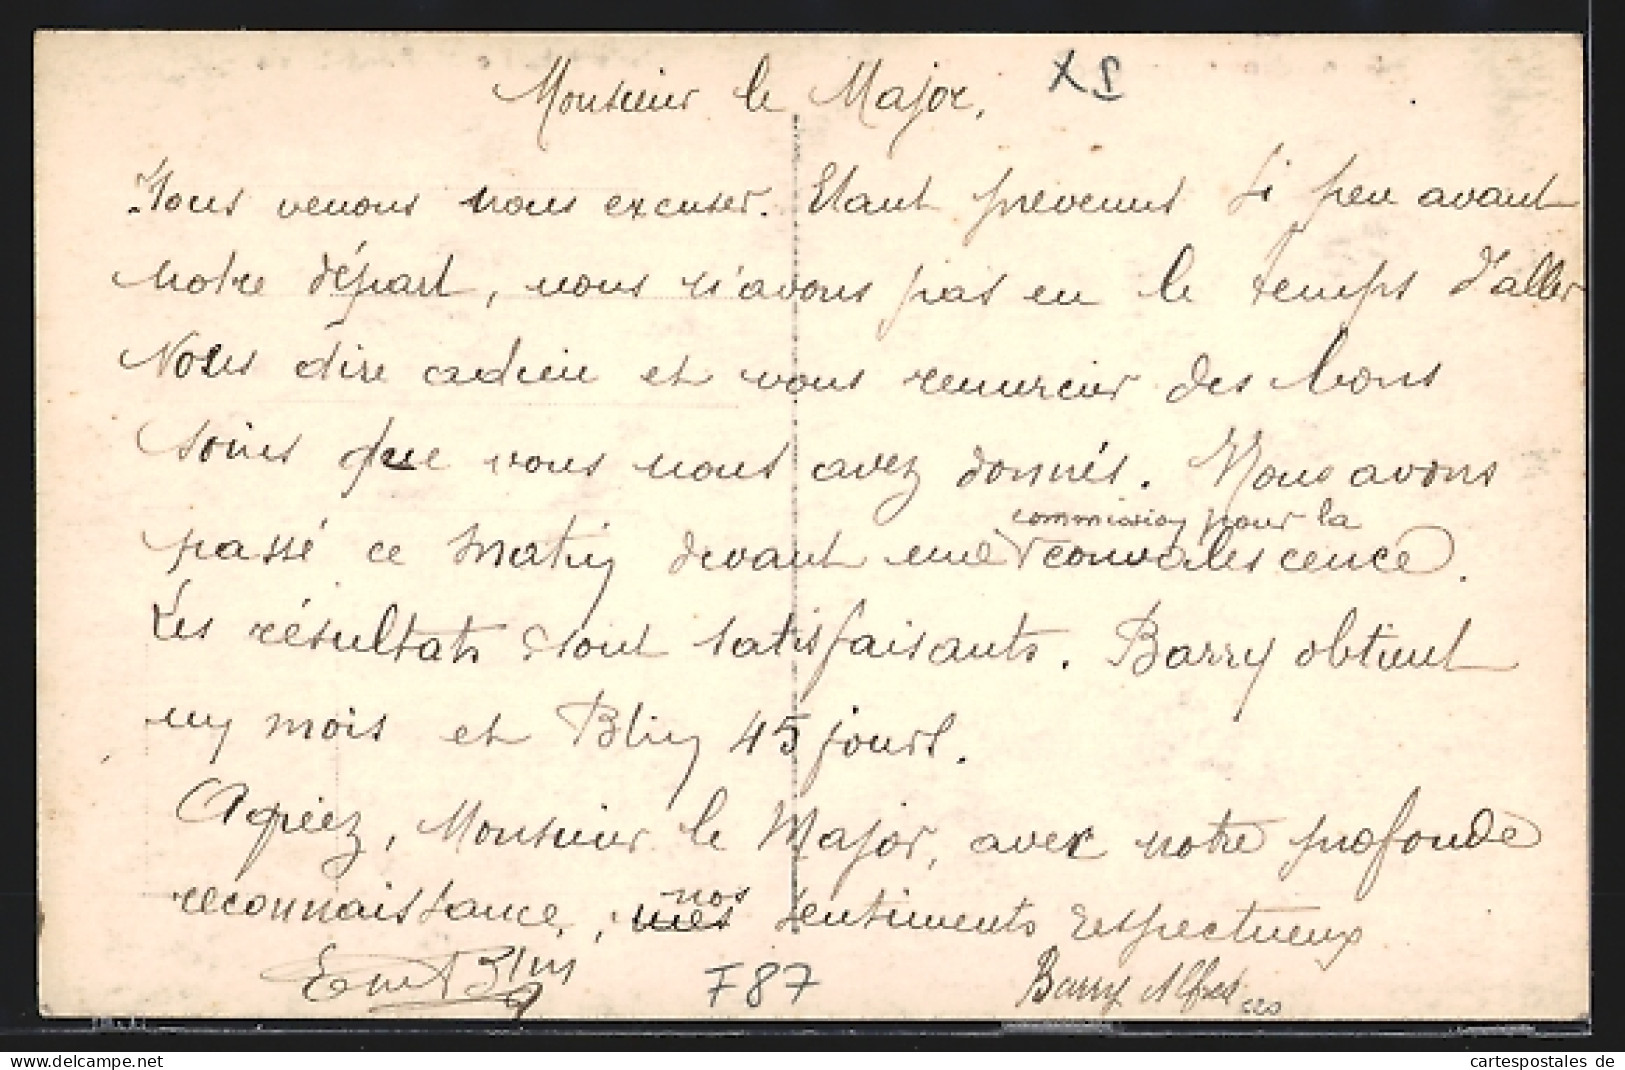 Monsieur le Major,
Nous venons nous excuser. Etant prévenus si peu avant
notre départ, nous n'avons pas eu le temps d'aller
vous dire adieu et vous remercier des bons
soins que vous nous avez donnés. Nous avons
commission pour la
passé ce matin devant une convalescence.
Les résultats sont satisfaisants. Barry obtient
un mois et Blin 45 jours.
Agréez, Monsieur le Major, avec notre profonde
nos
reconnaissance, mes sentiments respectueux
Blin F87 Barry Alfred
cartespostales de